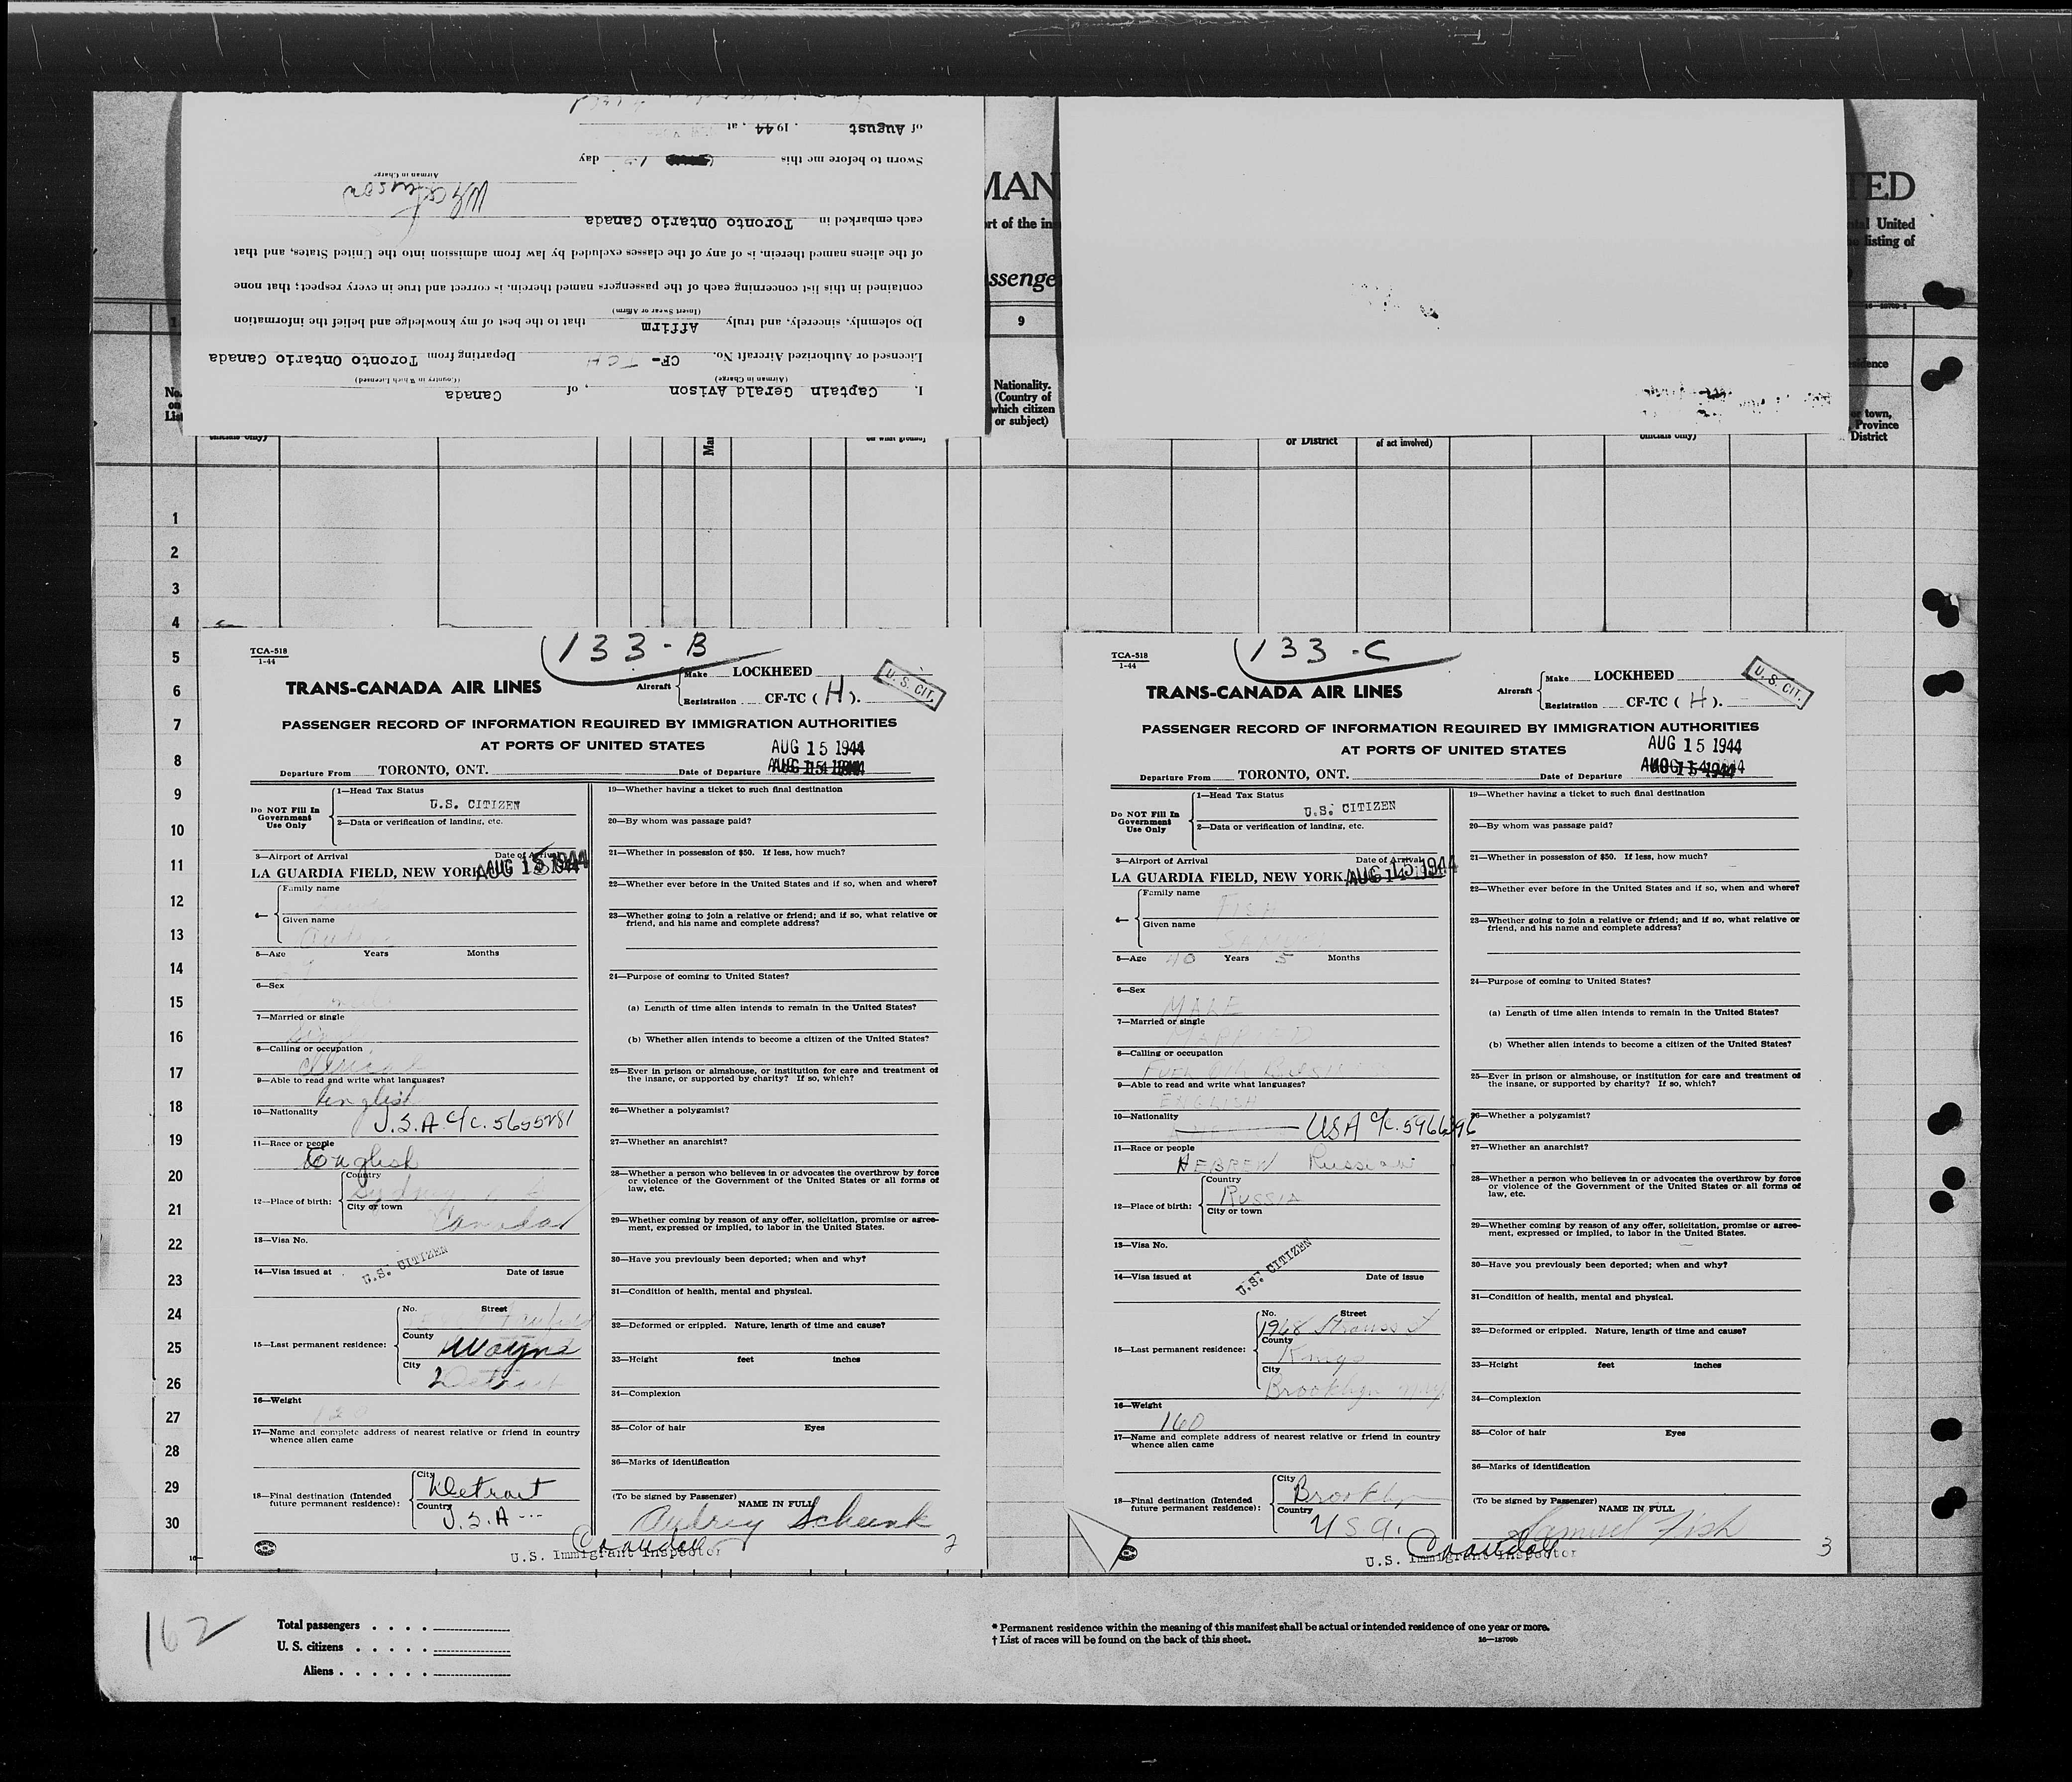 of August , 1944, at
Sworn to before me this day
Airman in Charge
each embarked in Toronto Ontario Canada
of the aliens named therein, is of any of the classes excluded by law from admission into the United States, and that
contained in this list concerning each of the passengers named therein, is correct and true in every respect; that none
Do solemnly, sincerely, and truly Affirm that to the best of my knowledge and belief the information
(Insert Swear or Affirm)
Licensed or Authorized Aircraft No. CF- TCH Departing from Toronto Ontario Canada
(Airman in Charge) (Country in Which Licensed)
I, Captain Gerald Avison , of Canada
MAN
rt of the in
ssenge
9
Nationality.
(Country of
which citizen
or subject)
TED
ntal United
listing of
sidence
or town,
Province
District
No.
on
List
officials only)
or District
of act involved)
officials only)
1
2
3
4
5
6
7
8
9
10
11
12
13
14
15
16
17
18
19
20
21
22
23
24
25
26
27
28
29
30
TCA-518
1-44
133-B
TRANS-CANADA AIR LINES
Aircraft Make LOCKHEED
Registration CF-TC ( H ).
U.S. CIT.
PASSENGER RECORD OF INFORMATION REQUIRED BY IMMIGRATION AUTHORITIES
AT PORTS OF UNITED STATES
AUG 15 1944
Departure From TORONTO, ONT. Date of Departure
Do NOT Fill In
Government
Use Only
1—Head Tax Status
U.S. CITIZEN
2—Data or verification of landing, etc.
3—Airport of Arrival Date of Arrival
LA GUARDIA FIELD, NEW YORK AUG 15 1944
4— Family name
Given name
5—Age Years Months
6—Sex
7—Married or single
8—Calling or occupation
Clerical
9—Able to read and write what languages?
English
10—Nationality
U.S.A. C/C. 5655281
11—Race or people
English
12—Place of birth: Country
Sydney
City or town
Canada
13—Visa No.
U.S. CITIZEN
14—Visa issued at Date of issue
15—Last permanent residence: No. Street
County
Wayne
City
Detroit
16—Weight
17—Name and complete address of nearest relative or friend in country
whence alien came
18—Final destination (Intended
future permanent residence):
City
Detroit
Country
U.S.A
19—Whether having a ticket to such final destination
20—By whom was passage paid?
21—Whether in possession of $50. If less, how much?
22—Whether ever before in the United States and if so, when and where?
23—Whether going to join a relative or friend; and if so, what relative or
friend, and his name and complete address?
24—Purpose of coming to United States?
(a) Length of time alien intends to remain in the United States?
(b) Whether alien intends to become a citizen of the United States?
25—Ever in prison or almshouse, or institution for care and treatment of
the insane, or supported by charity? If so, which?
26—Whether a polygamist?
27—Whether an anarchist?
28—Whether a person who believes in or advocates the overthrow by force
or violence of the Government of the United States or all forms of
law, etc.
29—Whether coming by reason of any offer, solicitation, promise or agree-
ment, expressed or implied, to labor in the United States.
30—Have you previously been deported; when and why?
31—Condition of health, mental and physical.
32—Deformed or crippled. Nature, length of time and cause?
33—Height feet inches
34—Complexion
35—Color of hair Eyes
36—Marks of identification
(To be signed by Passenger)
NAME IN FULL
Audrey Schenk
U.S. Immigrant Inspector
2
TCA-518
1-44
133-C
TRANS-CANADA AIR LINES
Aircraft Make LOCKHEED
Registration CF-TC ( H ).
U.S. CIT.
PASSENGER RECORD OF INFORMATION REQUIRED BY IMMIGRATION AUTHORITIES
AT PORTS OF UNITED STATES
AUG 15 1944
Departure From TORONTO, ONT. Date of Departure
Do NOT Fill In
Government
Use Only
1—Head Tax Status
U.S. CITIZEN
2—Data or verification of landing, etc.
3—Airport of Arrival Date of Arrival
LA GUARDIA FIELD, NEW YORK AUG 15 1944
4— Family name
FISH
Given name
SAMUEL
5—Age 40 Years 5 Months
6—Sex
MALE
7—Married or single
MARRIED
8—Calling or occupation
FUEL OIL
9—Able to read and write what languages?
ENGLISH
10—Nationality
USA C/C. 5966396
11—Race or people
HEBREW Russian
12—Place of birth: Country
RUSSIA
City or town
13—Visa No.
U.S. CITIZEN
14—Visa issued at Date of issue
15—Last permanent residence: No. Street
1968 Strauss St
County
Kings
City
Brooklyn N.Y.
16—Weight
160
17—Name and complete address of nearest relative or friend in country
whence alien came
18—Final destination (Intended
future permanent residence):
City
Brooklyn
Country
USA.
19—Whether having a ticket to such final destination
20—By whom was passage paid?
21—Whether in possession of $50. If less, how much?
22—Whether ever before in the United States and if so, when and where?
23—Whether going to join a relative or friend; and if so, what relative or
friend, and his name and complete address?
24—Purpose of coming to United States?
(a) Length of time alien intends to remain in the United States?
(b) Whether alien intends to become a citizen of the United States?
25—Ever in prison or almshouse, or institution for care and treatment of
the insane, or supported by charity? If so, which?
26—Whether a polygamist?
27—Whether an anarchist?
28—Whether a person who believes in or advocates the overthrow by force
or violence of the Government of the United States or all forms of
law, etc.
29—Whether coming by reason of any offer, solicitation, promise or agree-
ment, expressed or implied, to labor in the United States.
30—Have you previously been deported; when and why?
31—Condition of health, mental and physical.
32—Deformed or crippled. Nature, length of time and cause?
33—Height feet inches
34—Complexion
35—Color of hair Eyes
36—Marks of identification
(To be signed by Passenger)
NAME IN FULL
Samuel Fish
U.S. Immigrant Inspector
3
162
Total passengers
U. S. citizens
Aliens
* Permanent residence within the meaning of this manifest shall be actual or intended residence of one year or more.
† List of races will be found on the back of this sheet.
16—18709b